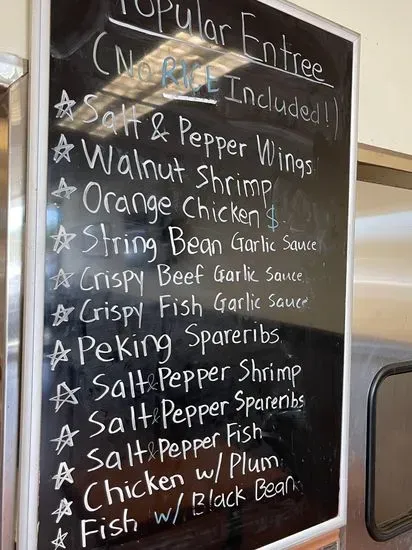 Popular Entree
(No RICE Included!)
☆ Salt & Pepper Wings
☆ Walnut Shrimp
☆ Orange Chicken $
☆ String Bean Garlic Sauce
☆ Crispy Beef Garlic Sauce
☆ Crispy Fish Garlic Sauce
☆ Peking Spareribs
☆ Salt & Pepper Shrimp
☆ Salt & Pepper Spareribs
☆ Salt & Pepper Fish
☆ Chicken w/ Plum
☆ Fish w/ Black Bean